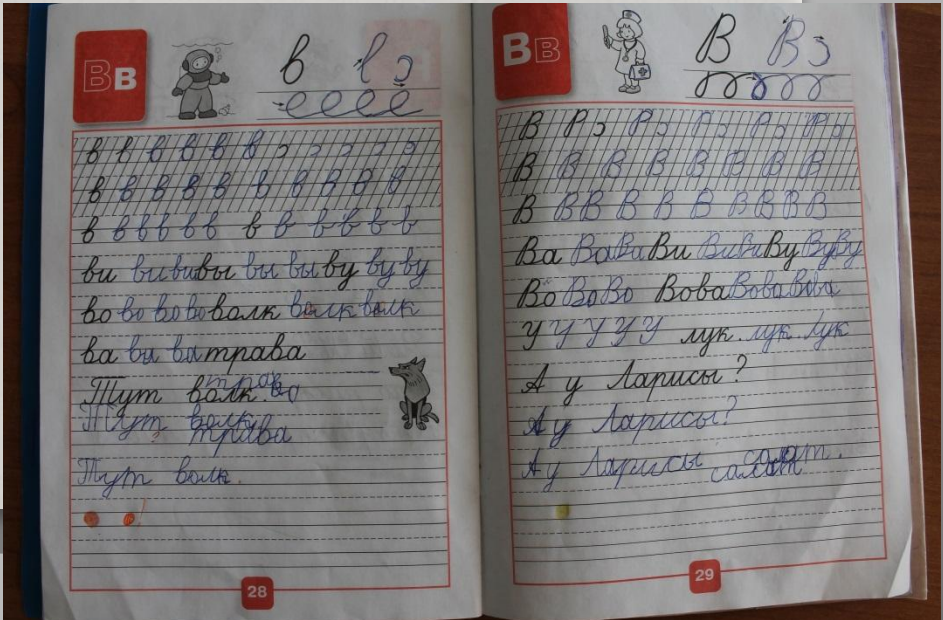 Вв
в в
в в в в в в
в в в в в в в в в в
в в в в в в в в в в в в
ви ви ви вы вы вы ву ву ву
во во во во волк волк волк
ва ва ва трава
трава
Тут волк. во
Тут волк
трава
Тут волк.
28
Вв
В В
В Р Р Р Р Р
В В В В В В В В
В В В В В В В В В В
Ва Ва Ва Ви Ви Ви Ву Ву Ву
Во Во Во Вова Вова Вова
У У У У У лук. лук. лук
А у Ларисы?
А у Ларисы?
А у Ларисы салат.
салат
29